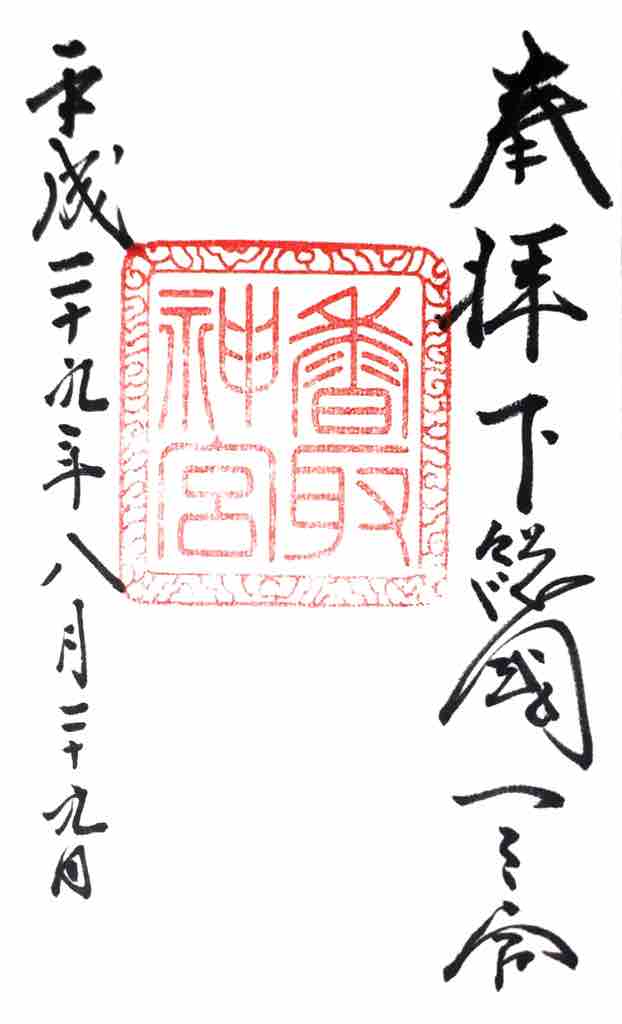 奉拝 下総國一之宮
香取
神宮
平成二十九年八月二十九日